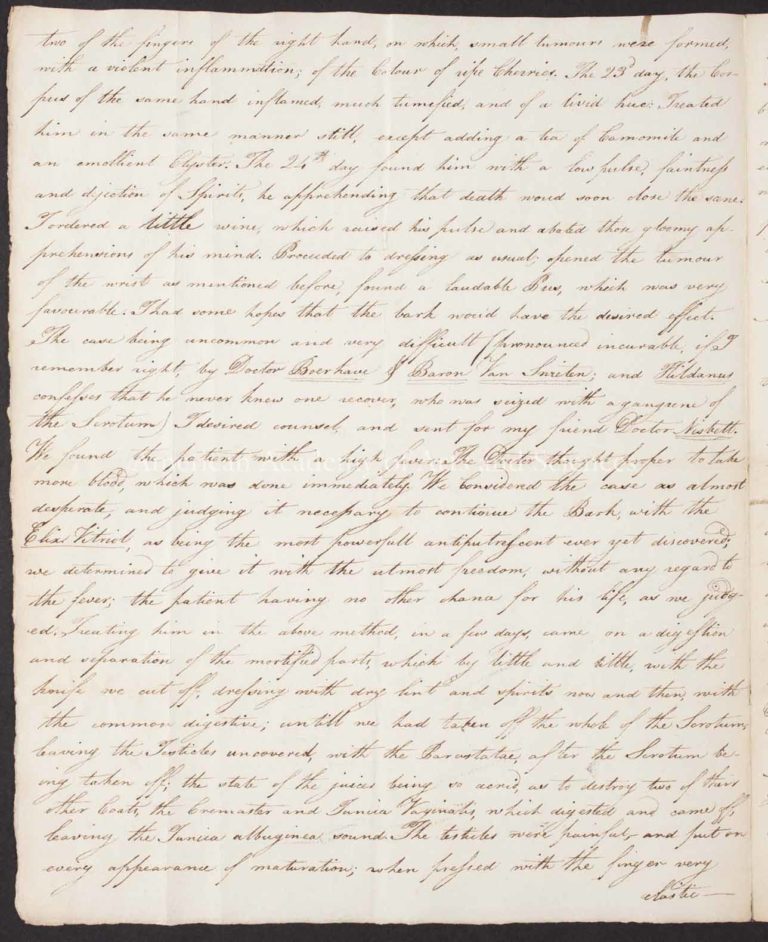 two of the fingers of the right hand, on which, small tumours were formed,
with a violent inflammation; of the Colour of ripe Cherries. The 23d day, the Cor-
pus of the same hand inflamed, much tumefied, and of a livid hue: Treated
him in the same manner still, except adding a tea of Camomile and
an emollient Clyster. The 24th day found him with a low pulse, faintness
and dejection of Spirits, he apprehending that death would soon close the scene.
I ordered a little wine, which raised his pulse and abated those gloomy ap-
prehensions of his mind. Proceeded to dressing as usual; opened the tumour
of the wrist as mentioned before, found a laudable Pus, which was very
favourable. I had some hopes that the bark would have the desired effect.
The case being uncommon and very difficult (pronounced incurable, if I
remember right, by Doctor Boerhave & Baron Van Swieten; and Hildanus
confesses that he never knew one recover, who was seized with a gangrene of
the Scrotum) I desired counsel, and sent for my friend Doctor Nisbett.
We found the patient with a high fever. The Doctor thought proper to take
more blood, which was done immediately. We Considered the case as almost
desperate, and judging it necessary to continue the Bark, with the
Elix: Vitriol, as being the most powerfull antiputrescent ever yet discovered,
we determined to give it with the utmost freedom, without any regard to
the fever; the patient having no other chance for his life, as we judg-
ed. Treating him in the above method, in a few days, came on a digestion
and separation of the mortified parts, which by little and little, with the
knife we cut off, dressing with dry lint and spirits now and then, with
the common digestive; untill we had taken off the whole of the Scrotum,
leaving the Testicles uncovered, with the Parastatae, after the Scrotum be-
ing taken off; the state of the juices being so acrid, as to destroy two of their
other Coats, the Cremaster and Tunica Vaginalis, which digested and came off,
leaving the Tunica albuginea sound. The testicles were painful, and put on
every appearance of maturation; when pressed with the finger very
elastic —
American Academy of Arts and Sciences